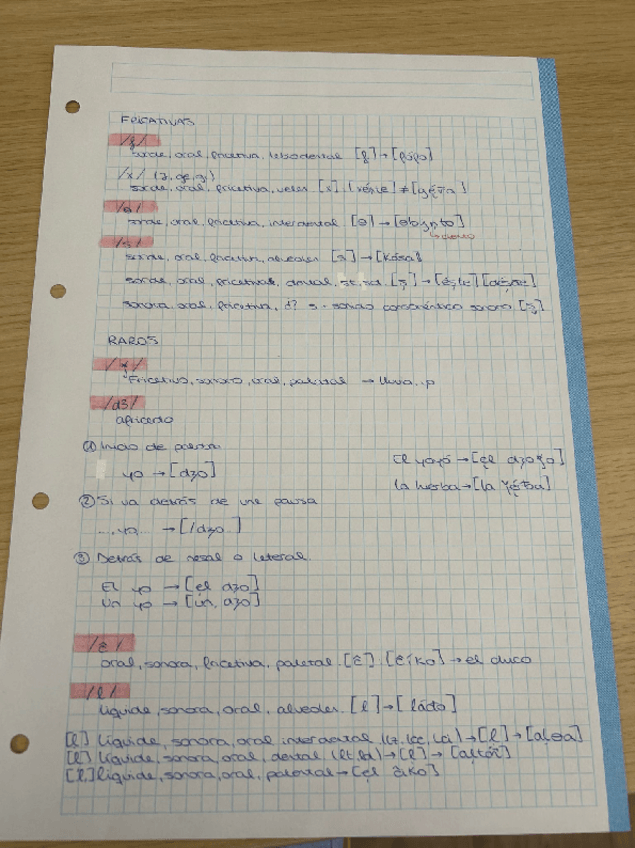 FRICATIVAS
/f/
sorda, oral, fricativa, labiodental [f] → [
/x/ (j, ge, gi)
sorda, oral, fricativa, velar [x]
/θ/
sorda, oral, fricativa, interdental [θ] →
/s/
sorda, oral, fricativa, alveolar [s] → [kása]
sorda, oral, fricativa, dental, st, sd
sonora, oral, fricativa, s + sonido consonántico sonoro
RAROS
Fricativa, sonora, oral, palatal → lluvia
/dʒ/
africado
① Inicio de palabra
yo → [dʒo]
El yoyó → [el
la hierba → [la
② Si va detrás de una pausa
... yo → [/dʒo]
③ Detrás de nasal o lateral
El yo → [el dʒo]
Un yo → [un dʒo]
/ĉ/
oral, sonora, fricativa, palatal [ĉ] [ĉíko] → el chico
/l/
líquida, sonora, oral, alveolar [l] → [ládo]
[l] líquida, sonora, oral interdental
[l] líquida, sonora, oral, dental (lt, ld) → [l] →
[l] líquida, sonora, oral, palatal → [el ĉíko]